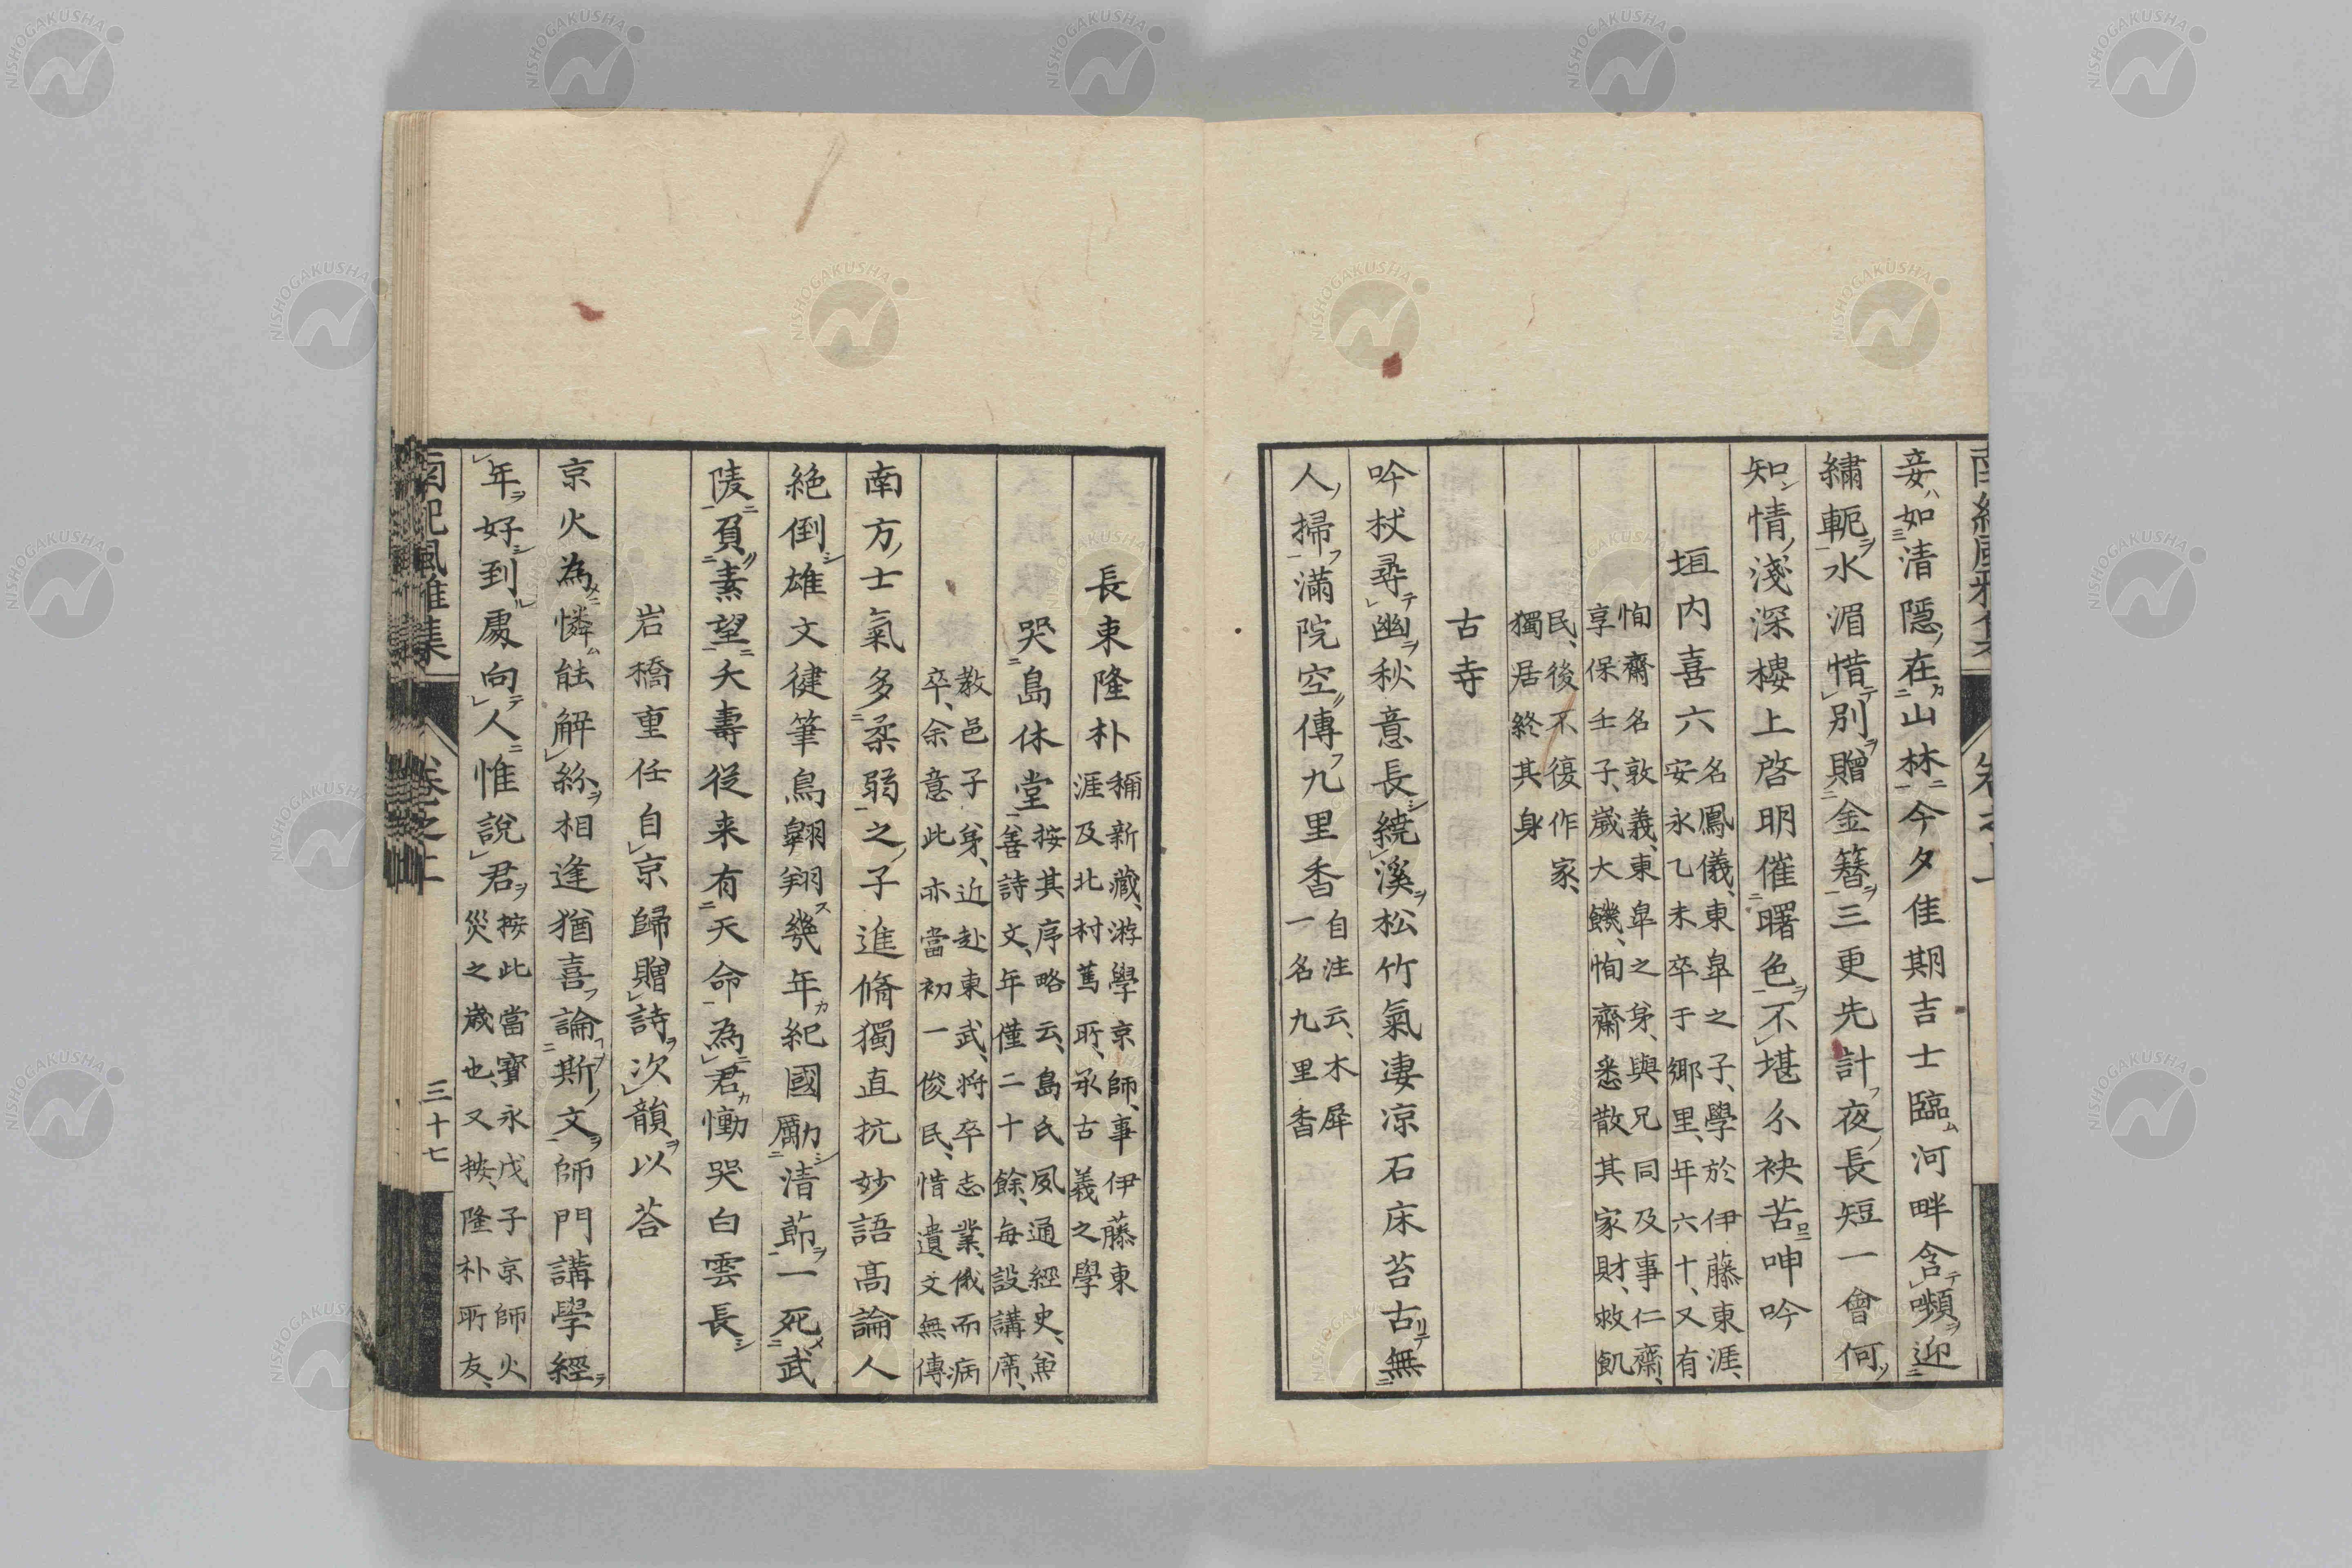 妾如清隱在山林今夕佳期吉士臨河畔含嚬迎
繡軛水湄惜別贈金簪三更先計夜長短一會何
知情淺深樓上啓明催曙色不堪分袂苦呻吟
垣内喜六名鳳儀、東皐之子、學於伊藤東涯、
安永乙未卒于鄉里、年六十、又有
恂齋名敦義、東皐之身、與兄同及事仁齋、
享保壬子、歲大饑、恂齋悉散其家財、救飢
民、後不復作家、
獨居終其身
古寺
吟杖尋幽秋意長繞溪松竹氣淒凉石床苔古無
人掃滿院空傳九里香自注云、木犀
一名九里香
長東隆朴稱新藏、游學京師、事伊藤東
涯及北村篤所、承古義之學
哭島休堂按其序略云、島氏夙通經史、兼
善詩文、年僅二十餘、每設講席、
教邑子身、近赴東武、将卒志業、俄而病
卒、余意此亦當初一俊民、惜遺文無傳
南方士氣多柔弱之子進脩獨直抗妙語高論人
絶倒雄文健筆鳥翺翔幾年紀國勵清節一死武
陵負素望夭壽從来有天命為君慟哭白雲長
岩橋重任自京歸贈詩次韻以荅
京火為憐能解絲相逢猶喜論斯文師門講學經
年好到處向人惟說君按此當寳永戊子京師火
災之歲也、又按、隆朴所友、
南紀風雅集 卷之上 三十七